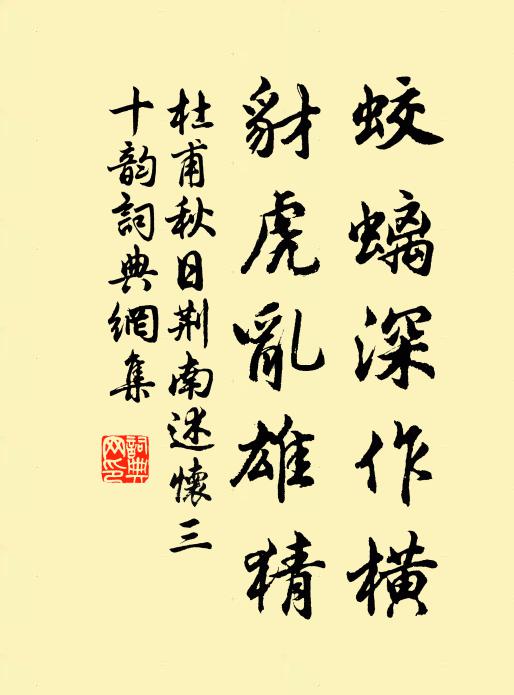 蛟螭深作橫
豺虎亂雄猜
杜甫秋日荆南述懷三
十韵詞典網集
詞典
网印